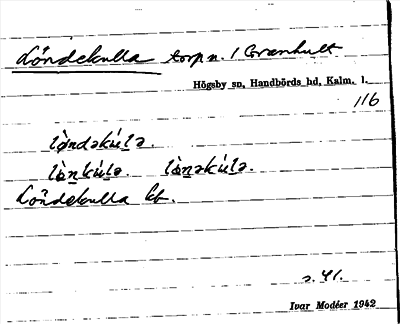 Löndekulla torp n. / Granhult
Högsby sn, Handbörds hd, Kalm. l.
116
lø̀ndəkúlə.
lø̀nkúlə. lø̀nəkúlə.
Löndekulla kb.
s. 41.
Ivar Modéer 1942